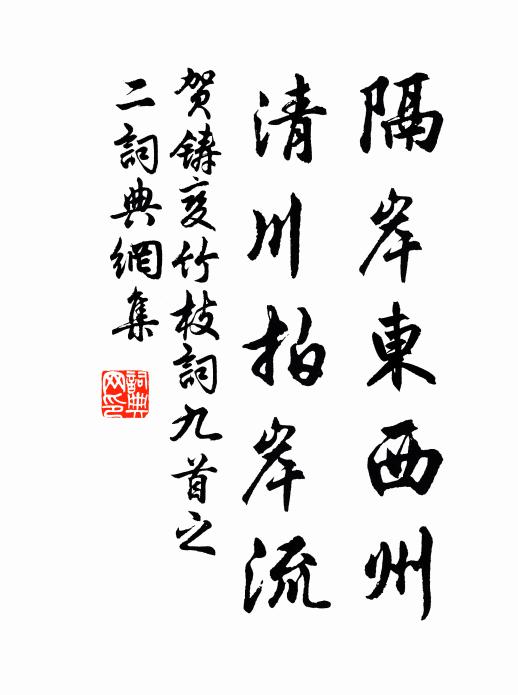 隔岸東西州
清川拍岸流
贺鑄变竹枝詞九首之
二詞典網集
詞典
网印